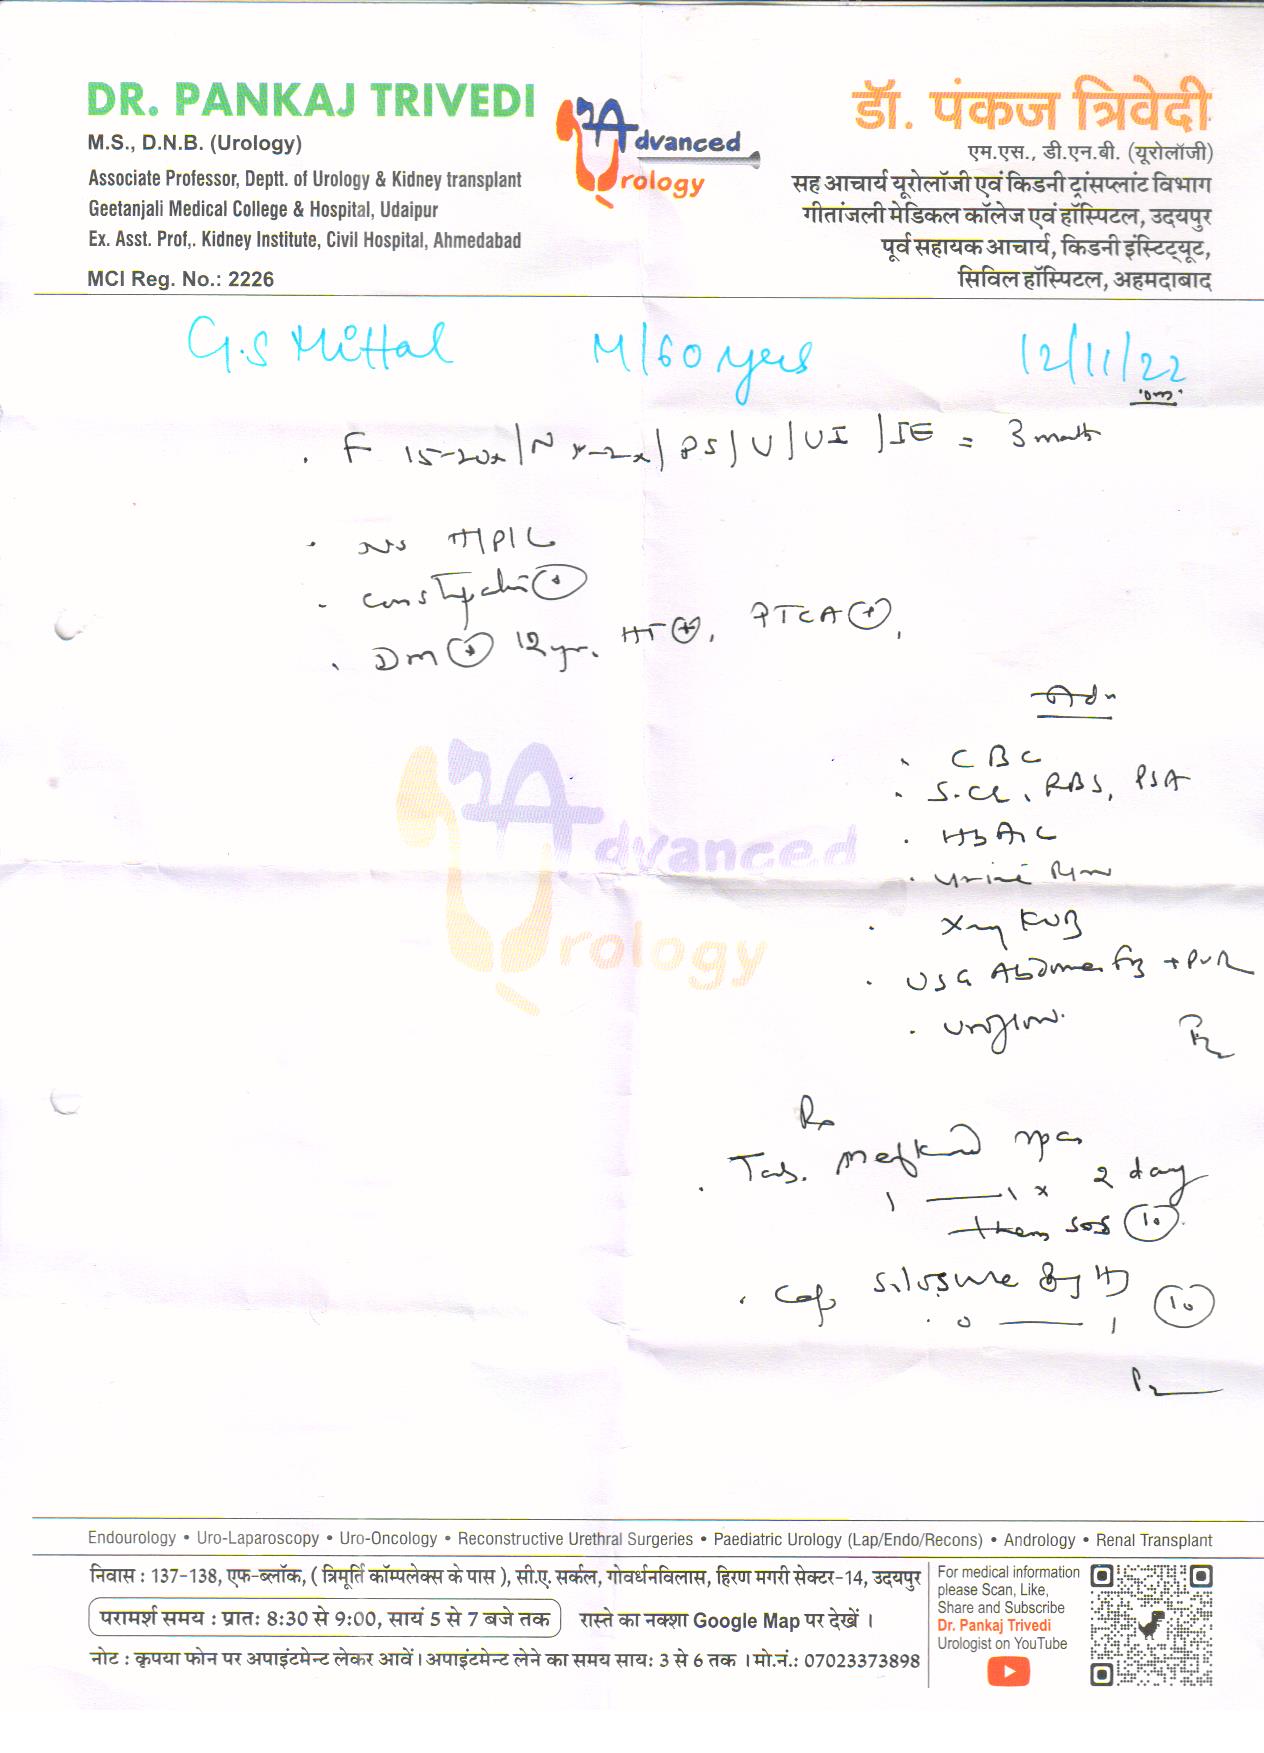 DR. PANKAJ TRIVEDI
M.S., D.N.B. (Urology)
Associate Professor, Deptt. of Urology & Kidney transplant
Geetanjali Medical College & Hospital, Udaipur
Ex. Asst. Prof,. Kidney Institute, Civil Hospital, Ahmedabad
MCI Reg. No.: 2226
Advanced
Urology
डॉ. पंकज त्रिवेदी
एम.एस., डी.एन.बी. (यूरोलॉजी)
सह आचार्य यूरोलॉजी एवं किडनी ट्रांसप्लांट विभाग
गीतांजली मेडिकल कॉलेज एवं हॉस्पिटल, उदयपुर
पूर्व सहायक आचार्य, किडनी इंस्टिट्यूट,
सिविल हॉस्पिटल, अहमदाबाद
G.S Mittal M/60 yers 12/11/22
. F 15-20x/N /PS/U/UI/SE = 3 month
. No
. Constipation (+)
. DM (+) 12 yr. HT (+), PTCA (+),
Adv
. CBC
. S.Cr, RBS, PSA
. HbA1C
. Urine
. Xray KUB
. USG Abdomen + PVR
. Uroflow.
Advanced
Urology
Rx
. Tab. Mefkind
1 — 1 x 2 day
then SOS (10)
. Cap Silosure 8mg (10)
0 — 1
Endourology • Uro-Laparoscopy • Uro-Oncology • Reconstructive Urethral Surgeries • Paediatric Urology (Lap/Endo/Recons) • Andrology • Renal Transplant
निवास : 137-138, एफ-ब्लॉक, ( त्रिमूर्ति कॉम्पलेक्स के पास ), सी.ए. सर्कल, गोवर्धनविलास, हिरण मगरी सेक्टर-14, उदयपुर
परामर्श समय : प्रातः 8:30 से 9:00, सायं 5 से 7 बजे तक रास्ते का नक्शा Google Map पर देखें ।
नोट : कृपया फोन पर अपाइंटमेन्ट लेकर आवें। अपाइंटमेन्ट लेने का समय सायः 3 से 6 तक । मो.नं.: 07023373898
For medical information
please Scan, Like,
Share and Subscribe
Dr. Pankaj Trivedi
Urologist on YouTube